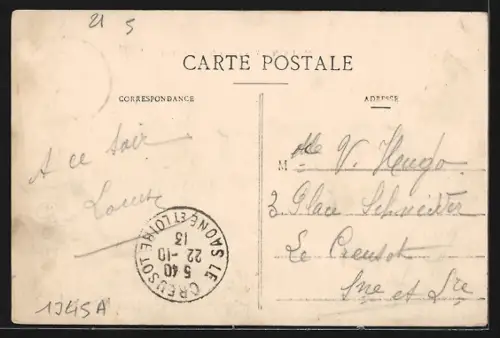 21 5
CARTE POSTALE
CORRESPONDANCE
ADRESSE
A ce soir
Mlle V. Hugo
Place Schneider
Le Creusot
Sne et Lre
LE CREUSOT
SAONE ET LOIRE
5 40
22-10
13
1345A